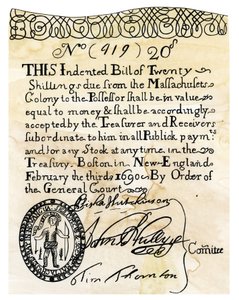 No (919) 20s
THIS Indented Bill of Twenty
Shillings due from the Massachusets
Colony to the Possessor shall be in value
equal to money & shall be accordingly
accepted by the Treasurer and Receivers
subordinate to him in all Publick paymts
and for any Stock at any time in the
Treasury. Boston in New-England
February the third 1690. By Order of
the General Court
Hutchinson
John
Comittee
Tim Thornton